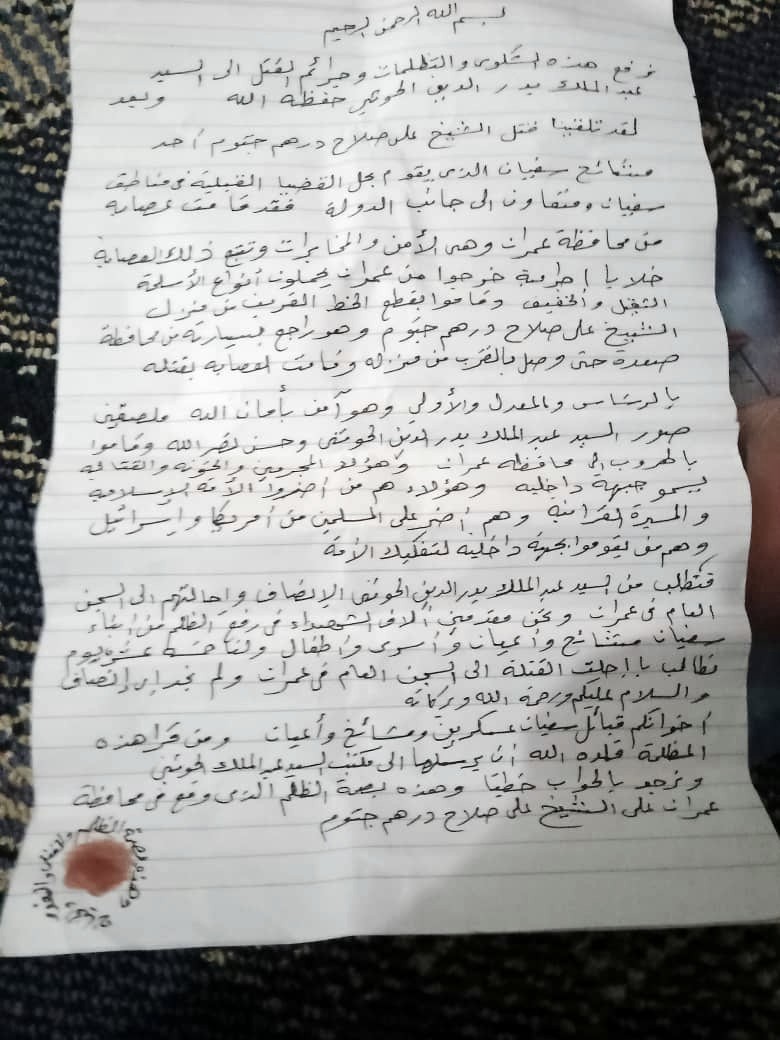 بسم الله الرحمن الرحيم
نرفع هذه الشكوى والتظلمات وجرائم القتل الى السيد
عبدالملك بدر الدين الحوثي حفظه الله وبعد
لقد تلقينا قتل الشيخ علي صلاح درهم جتوم أحد
مشائخ سفيان الذي يقوم بحل القضيا القبلية في مناطق
سفيان ومتعاون الى جانب الدولة فقد قامت عصابه
من محافظة عمران وهي الأمن والمخابرات وتتبع ذلك العصابة
خلايا إجرامية خرجوا من عمران يحملون أنواع الأسلحة
الثقيل والخفيف وقاموا بقطع الخط القريب من منزل
الشيخ علي صلاح درهم جتوم وهو راجع بسيارته من محافظة
صعدة حتى وصل بالقرب من منزله وقامت لعصابه بقتله
بالرساس والمعدل والأولي وهو آمن بأمان الله ملصقين
صور السيد عبد الملك بدر الدين الحوثي وحسن نصر الله وقاموا
بالهروب الى محافظه عمران وهؤلاء المجرمين والخونه والقتاله
يسمو جبهة داخليه وهؤلاء هم من أضروا الأمة الإسلاميه
والمسيرة القرآنية وهم أضر على المسلمين من أمريكا وإسرائيل
وهم من يقوموا بجهة داخلية لتفكيك الأمة
فنطلب من السيد عبد الملك بدر الدين الحوثي الإنصاف وإحالتهم الى السجن
العام في عمران ونحن مقدمين آلاف الشهداء في رفع الظلم من ابناء
سفيان مشائخ وأعيان وأسرى وأطفال ولنا خمسة عشر يوم
نطالب باإحلت القتلة الى السجن العام في عمران ولم نجد اي إنصاف
والسلام عليكم ورحمة الله وبركاته
أخوانكم قبائل سفيان عسكريين ومشائخ وأعيان ومن قرا هذه
المظلمة قلده الله أن يرسلها الى مكتب السيد عبد الملك الحوثي
ونرجو بالجواب خطيا وهذه بصمة الظلم الذي وقع في محافظة
عمران على الشيخ علي صلاح درهم جتوم
وهذه بصمة الظلم